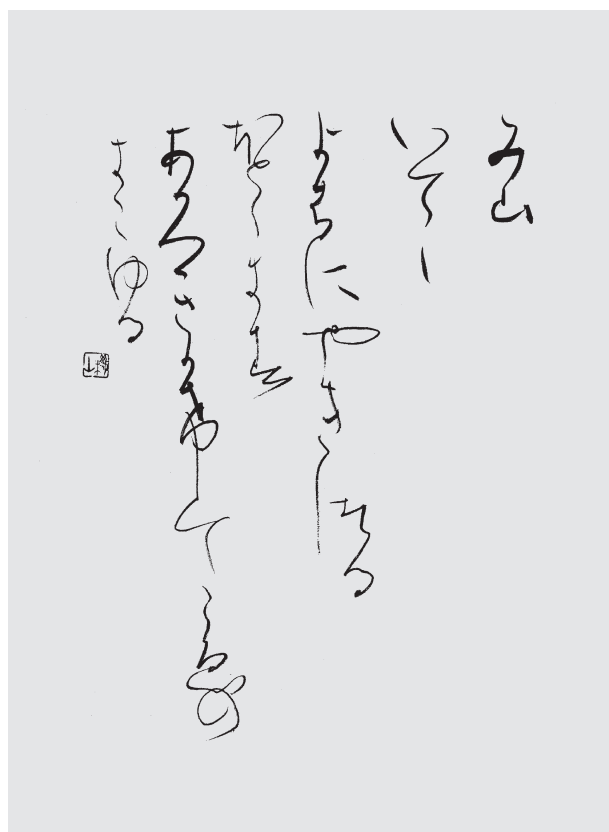 み山
いてゝ
よはにやきつる
ほとゝきす
あかつきかけてこゑの
きこゆる